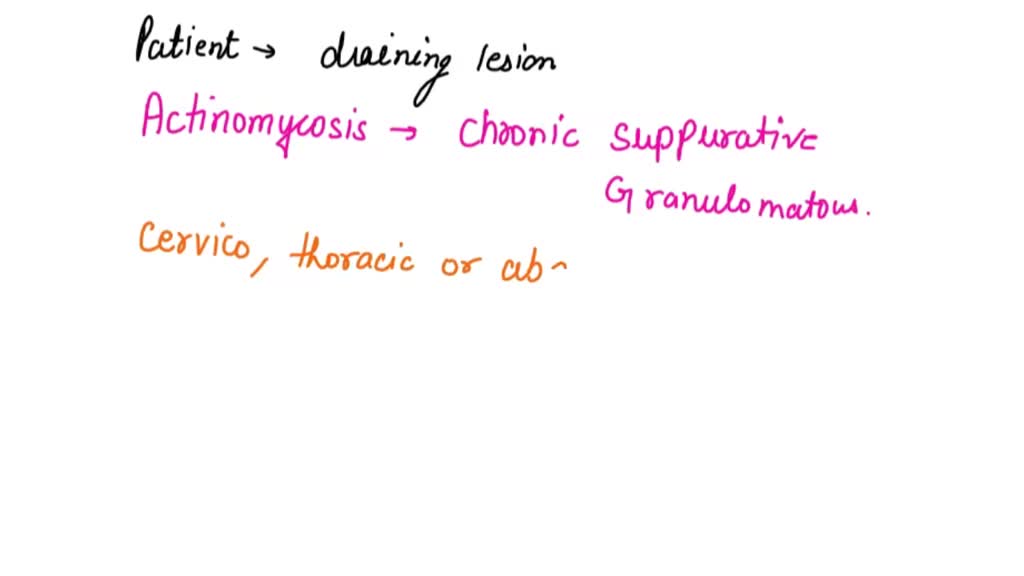 Patient → draining lesion
Actinomycosis → Chronic suppurative
Granulomatous.
Cervico, thoracic or ab